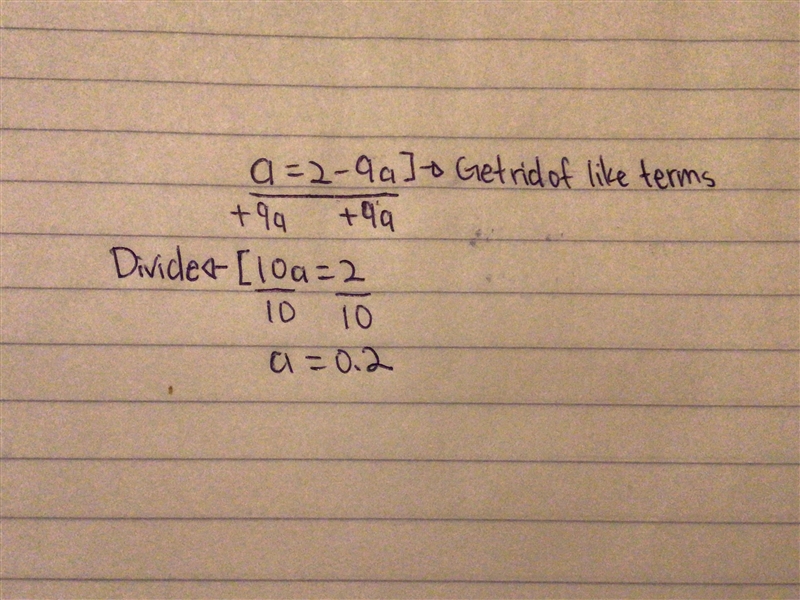 a = 2 - 9a ] → Get rid of like terms
+9a +9a
Divide ← [ 10a = 2
10 10
a = 0.2